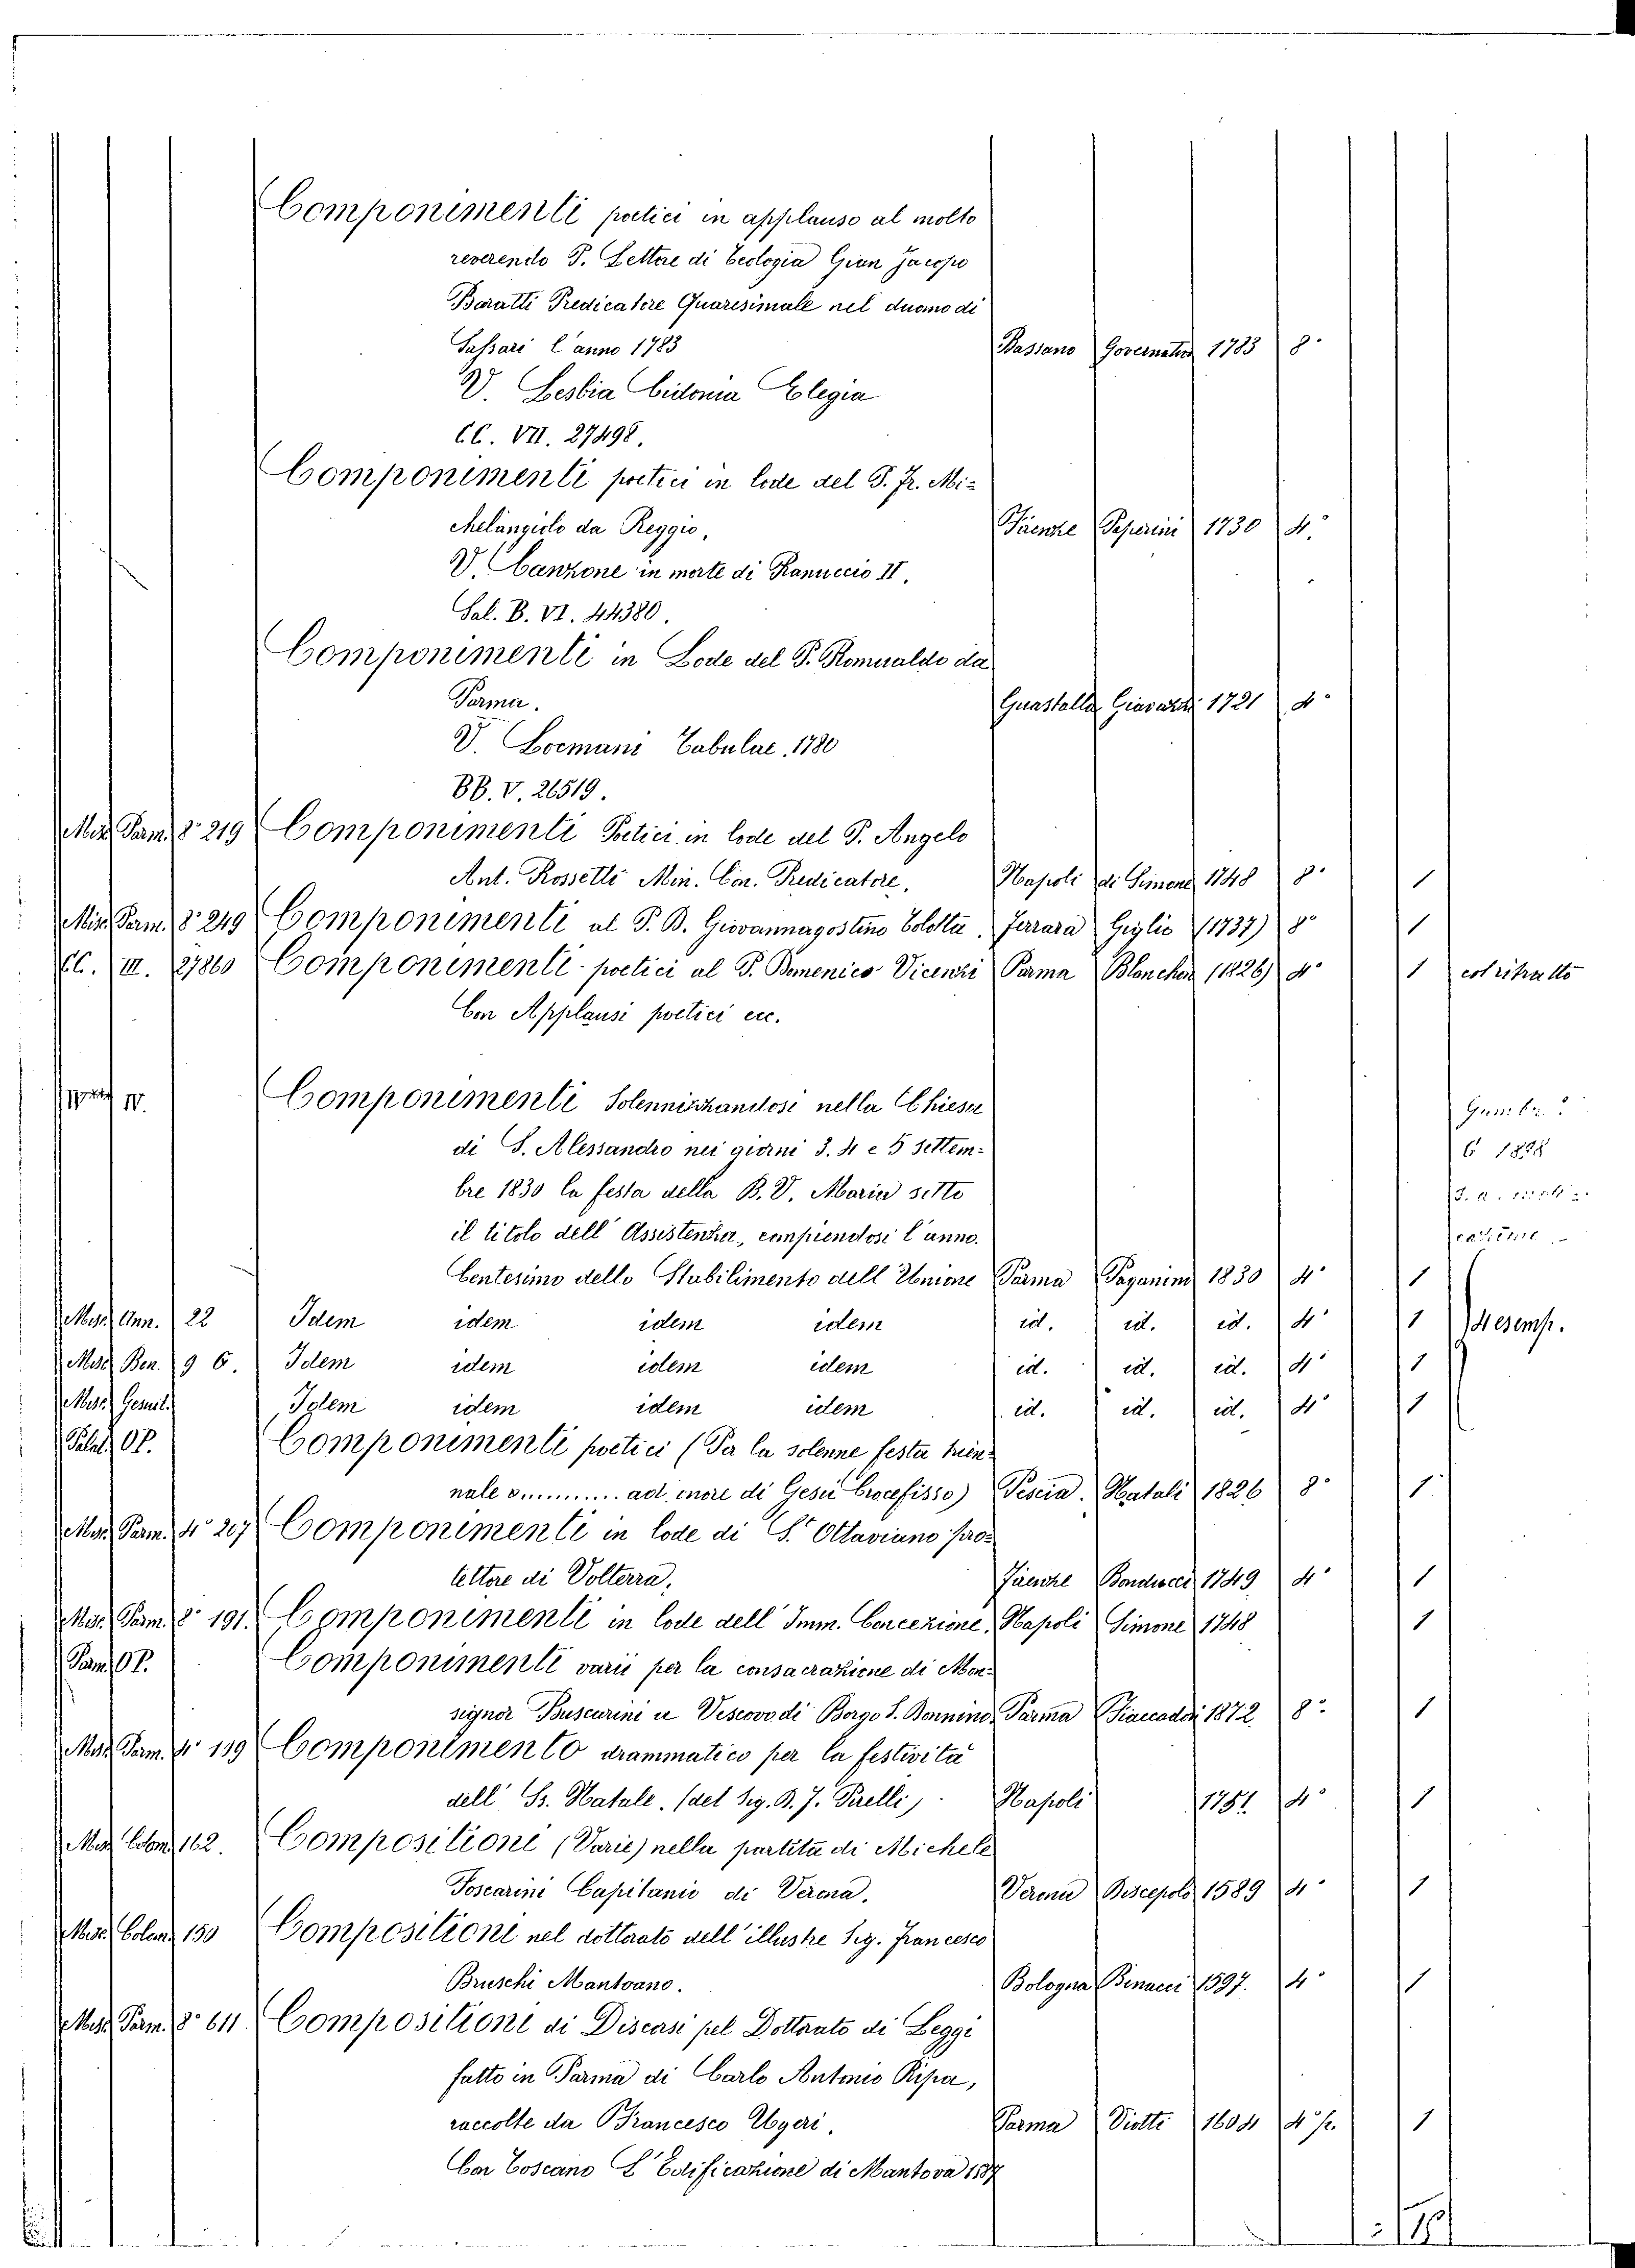 Componimenti poetici in applauso al molto
reverendo P. Lettore di Teologia Gian Jacopo
Baratti Predicatore Quaresimale nel duomo di
Sassari l'anno 1783 Bassano Governativo 1783 8°
V. Lesbia Cidonia Elegia
CC. VII. 27498.
Componimenti poetici in lode del P. Fr. Mi-
chelangiolo da Reggio, Firenze Paperini 1730 4°
V. Canzone in morte di Ranuccio II.
Sal. B. VI. 44380.
Componimenti in Lode del P. Romualdo da
Parma. Guastalla Giavazzi 1721 4°
V. Locmani Fabulae, 1780
BB. V. 26519.
Misc. Parm. 8° 219 Componimenti Poetici in lode del P. Angelo
Ant. Rossetti Min. Con. Predicatore. Napoli di Simone 1748 8° 1
Misc. Parm. 8° 249 Componimenti al P. B. Giovannagostino Colotta. Ferrara Giglio (1737) 8° 1
CC. III. 27860 Componimenti poetici al P. Domenico Vicenzi Parma Blanchon (1826) 4° 1 col ritratto
Con Applausi poetici ec.
IV. Componimenti Solennizzandosi nella Chiesa
di S. Alessandro nei giorni 3. 4 e 5 settem-
bre 1830 la festa della B. V. Maria sotto
il titolo dell'Assistenza, compiendosi l'anno.
Centesimo dello Stabilimento dell'Unione Parma Paganino 1830 4° 1
Misc. Ann. 22 Idem idem idem idem id. id. id. 4° 1 4 esemp.
Misc. Ben. 9 6. Idem idem idem idem id. id. id. 4° 1
Misc. Gesuit. Idem idem idem idem id. id. id. 4° 1
Palat. OP. Componimenti poetici (Per la solenne festa trien-
nale ad onore di Gesù Crocefisso) Pescia. Natali 1826 8° 1
Misc. Parm. 4° 207 Componimenti in lode di S. Ottaviano pro-
tettore di Volterra. Firenze Bonducci 1749 4° 1
Misc. Parm. 8° 191. Componimenti in lode dell'Imm. Concezione. Napoli Simone 1748 1
Parm. OP. Componimenti varii per la consacrazione di Mon-
signor Buscarini a Vescovo di Borgo S. Donnino. Parma Fiaccadori 1872 8° 1
Misc. Parm. 4° 139 Componimento drammatico per la festività
dell' Ss. Natale. (del Sig. B. F. Pirelli) Napoli 1751 4° 1
Misc. Colom. 162. Compositioni (Varie) nella partita di Michele
Foscarini Capitanio di Verona. Verona Discepolo 1589 4° 1
Misc. Colom. 150 Compositioni nel dottorato dell'illustre Sig. Francesco
Bruschi Mantovano. Bologna Benacci 1597. 4° 1
Misc. Parm. 8° 611 Compositioni di Discorsi pel Dottorato di Leggi
fatto in Parma di Carlo Antonio Ripa,
raccolte da Francesco Ugeri. Parma Viotti 1604 4° p. 1
Con Toscano L'Edificazione di Mantova 1587